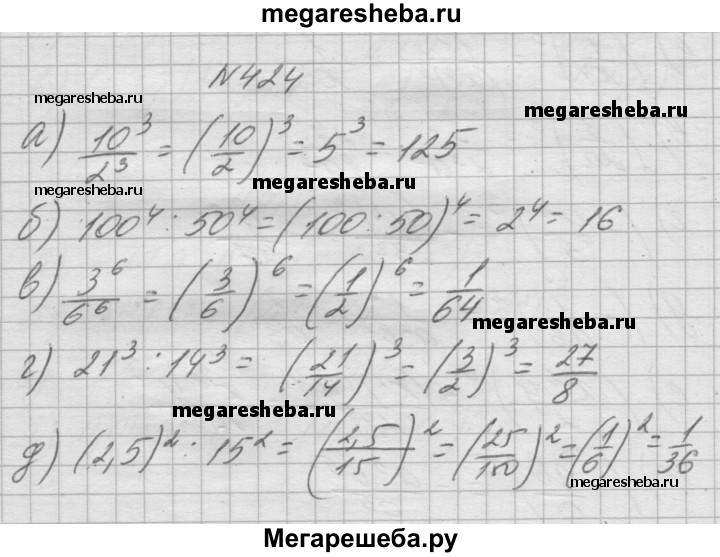 megaresheba.ru
N424
megaresheba.ru
megaresheba.ru
а) 10³/2³ = (10/2)³ = 5³ = 125
megaresheba.ru
megaresheba.ru
б) 100⁴ : 50⁴ = (100 : 50)⁴ = 2⁴ = 16
в) 3⁶/6⁶ = (3/6)⁶ = (1/2)⁶ = 1/64
megaresheba.ru
г) 21³ : 14³ = (21/14)³ = (3/2)³ = 27/8
megaresheba.ru
д) (2,5)² : 15² = (2,5/15)² = (25/150)² = (1/6)² = 1/36
megaresheba.ru
Мегарешеба.ру